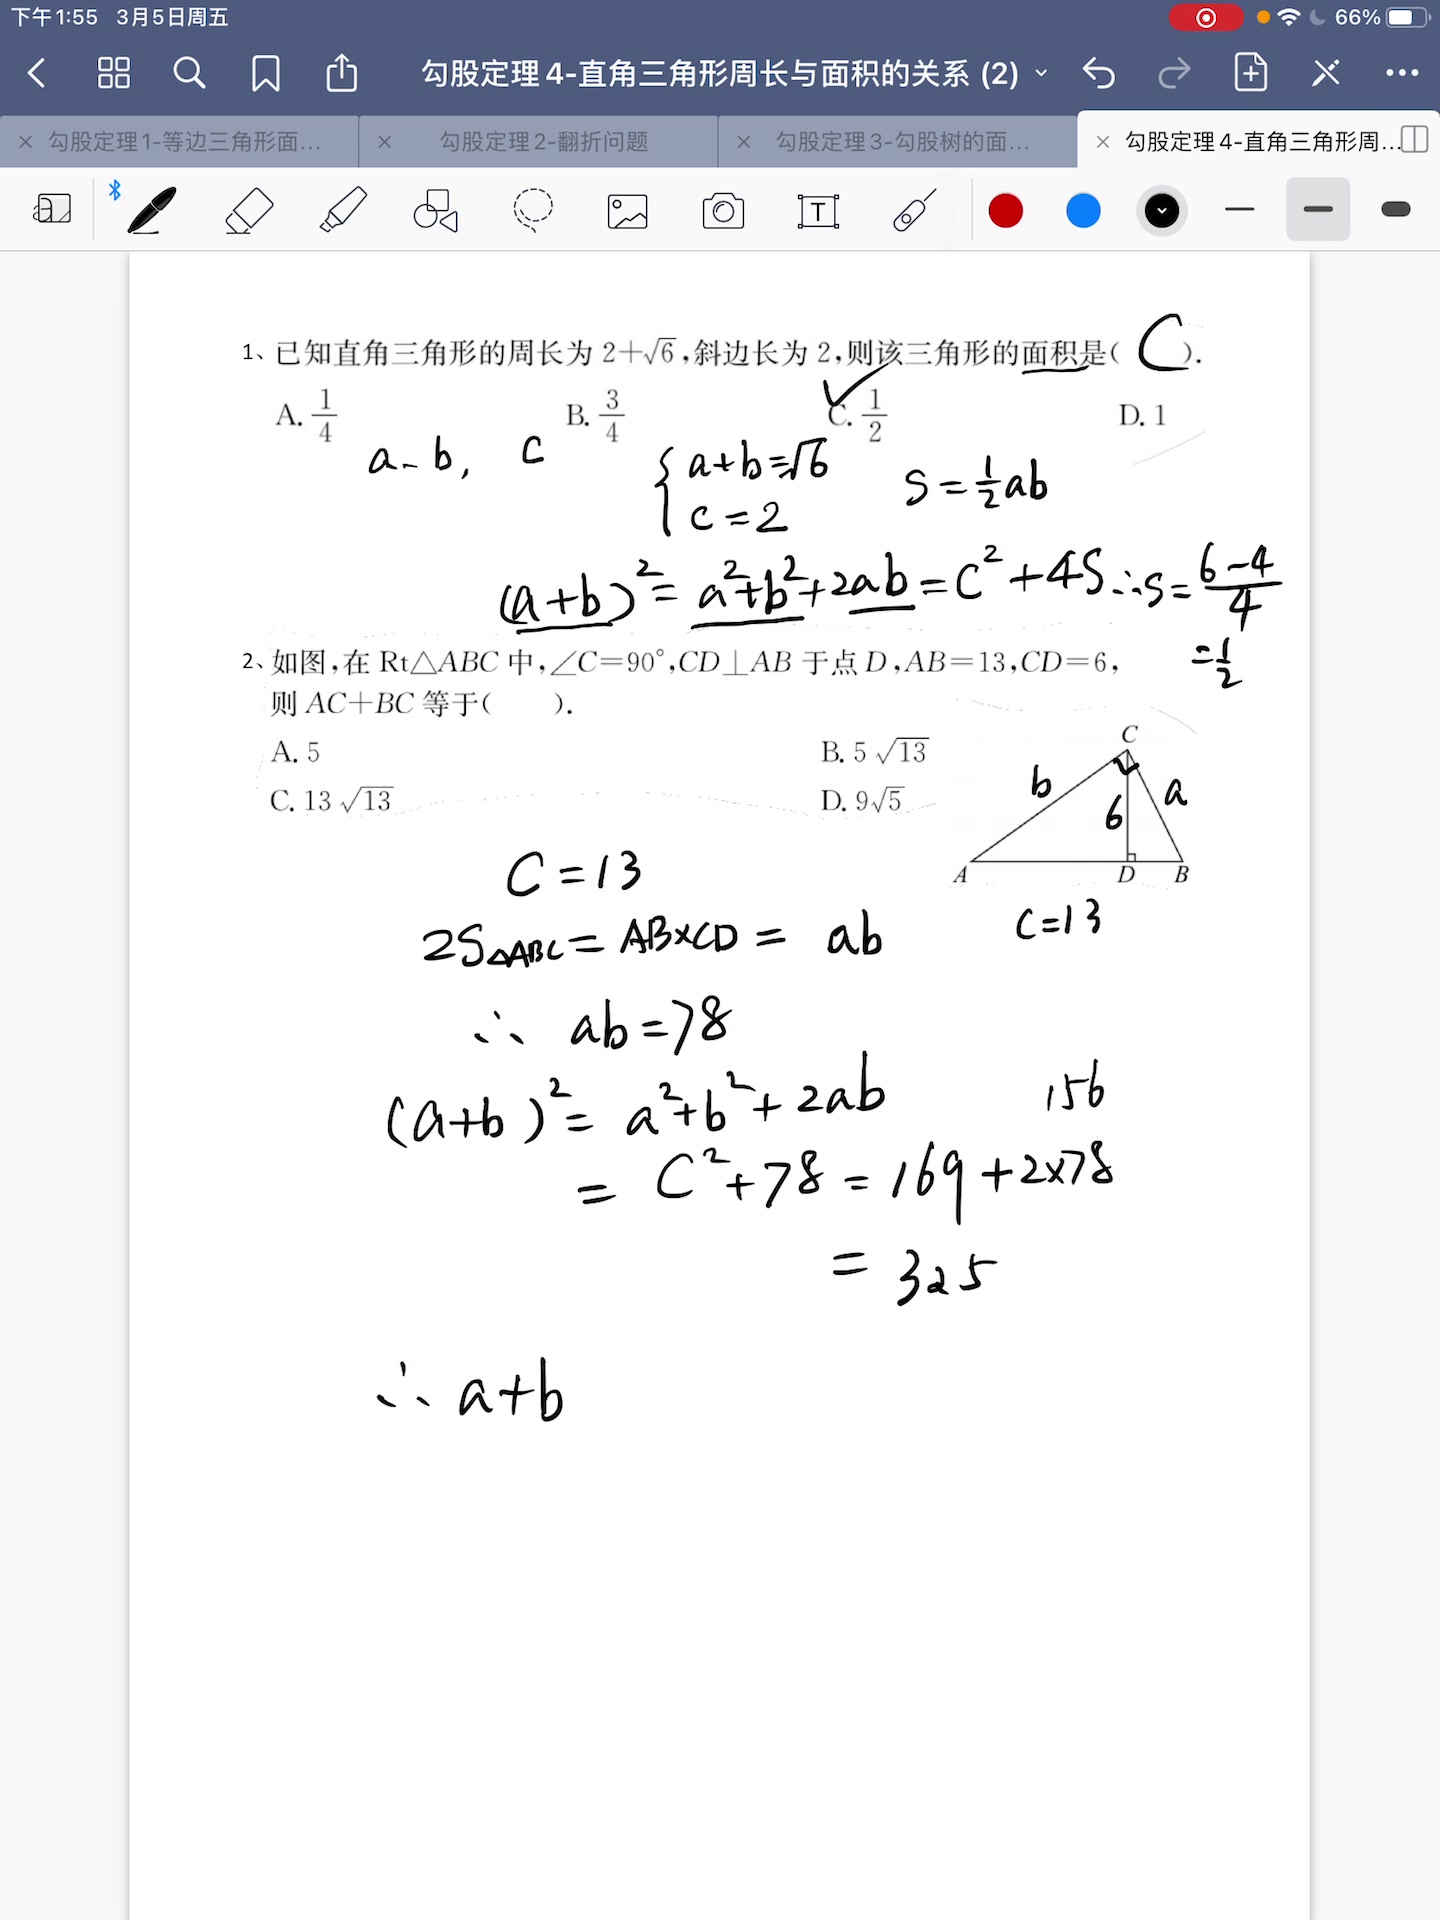 下午1:55 3月5日周五 66%
勾股定理4-直角三角形周长与面积的关系 (2)
勾股定理1-等边三角形面... 勾股定理2-翻折问题 勾股定理3-勾股树的面... 勾股定理4-直角三角形周...
1、已知直角三角形的周长为 2+√6,斜边长为 2,则该三角形的面积是( C ).
A. 1/4 B. 3/4 C. 1/2 D. 1
a、b, c
{ a+b=√6
c=2
S=½ab
(a+b)²=a²+b²+2ab=c²+4S ∴S=(6-4)/4
=½
2、如图,在 Rt△ABC 中,∠C=90°,CD⊥AB 于点 D,AB=13,CD=6,
则 AC+BC 等于( ).
A. 5 B. 5√13
C. 13√13 D. 9√5
C
b 6 a
A D B
c=13
C=13
2S△ABC=AB×CD= ab
∴ ab=78
(a+b)²= a²+b²+2ab
156
= C²+78=169+2×78
= 325
∴ a+b